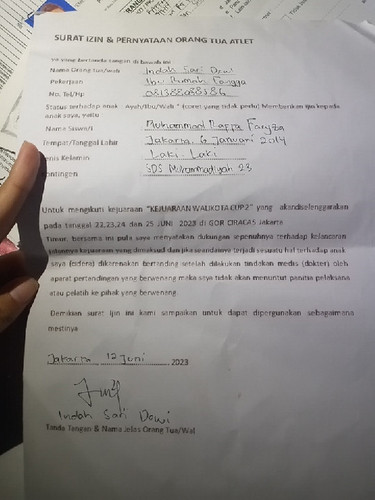 SURAT IZIN & PERNYATAAN ORANG TUA ATLET
Yang bertanda tangan di bawah ini
Nama Orang tua/wali Indah Sari Dewi
Pekerjaan Ibu Rumah Tangga
No. Tel/Hp
Status terhadap anak : Ayah/Ibu/Wali * (coret yang tidak perlu) Memberikan ijin kepada
anak saya, yaitu
Nama Siswa/i Muhammad Raffa
Tempat/Tanggal Lahir Jakarta, 6 Januari 2014
Jenis Kelamin Laki-Laki
Kontingen SDS Muhammadiyah 23
Untuk mengikuti kejuaraan "KEJUARAAN WALIKOTA CUP2" yang akandiselenggarakan
pada tanggal 22,23,24 dan 25 JUNI 2023 di GOR CIRACAS Jakarta
Timur. bersama ini pula saya menyatakan dukungan sepenuhnya terhadap kelancaran
jalannya kejuaraan yang dimaksud dan jika seandainya terjadi sesuatu hal terhadap anak
saya (cidera) dikarenakan bertanding setelah dilakukan tindakan medis (dokter) oleh
aparat pertandingan yang berwenang maka saya tidak akan menuntut panitia pelaksana
atau pelatih ke pihak yang berwenang
Demikian surat ijin ini kami sampaikan untuk dapat dipergunakan sebagaimana
mestinya
Jakarta, 12 Juni 2023
Indah Sari Dewi
Tanda Tangan & Nama Jelas Orang Tua/Wal